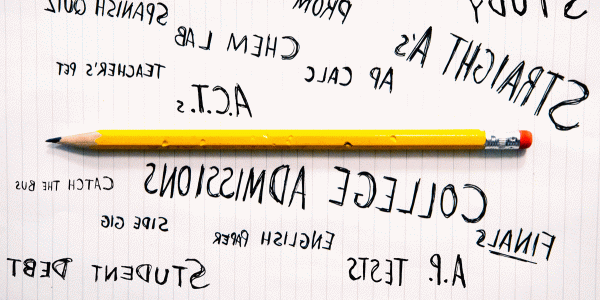 SPANISH QUIZ
PROM
STUDY
CHEM LAB
STRAIGHT A's
TEACHER'S PET
AP CALC
A.C.T.s
COLLEGE ADMISSIONS
CATCH THE BUS
SIDE GIG
ENGLISH PAPER
FINALS
STUDENT DEBT
A.P. TESTS